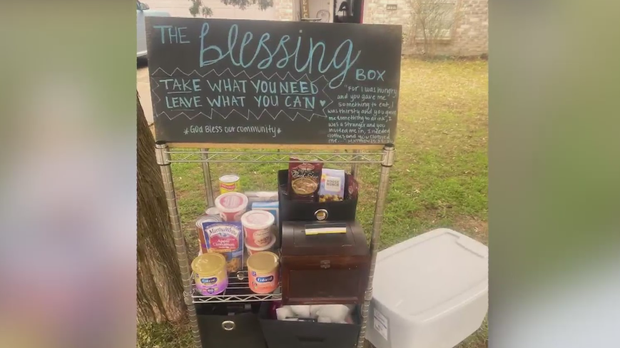 THE blessing BOX
TAKE WHAT YOU NEED
LEAVE WHAT YOU CAN
God Bless our community
"For I was hungry
and you gave me
something to eat, I
was thirsty and you gave
me something to drink, I
was a stranger and you
invited me in, I needed
clothes and you clothed